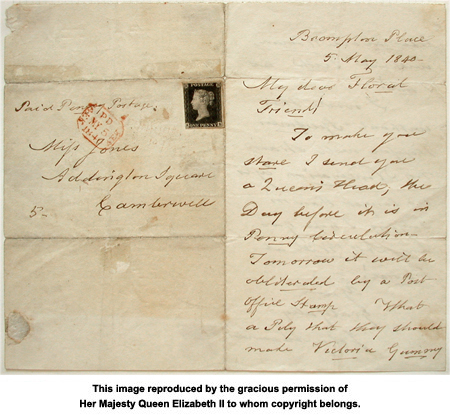 Paid Penny Postage
POSTAGE
ONE PENNY
PD
5
1840
Miss Jones
Addington Square
Camberwell
Brompton Place
5. May 1840
My dear Floral
Friend!
To make you
stare I send you
a Queen's Head, the
Day before it is in
Penny Circulation
Tomorrow it will be
by a Post
office Stamp What
a Pity that they should
made Victoria Gummy
This image reproduced by the gracious permission of
Her Majesty Queen Elizabeth II to whom copyright belongs.